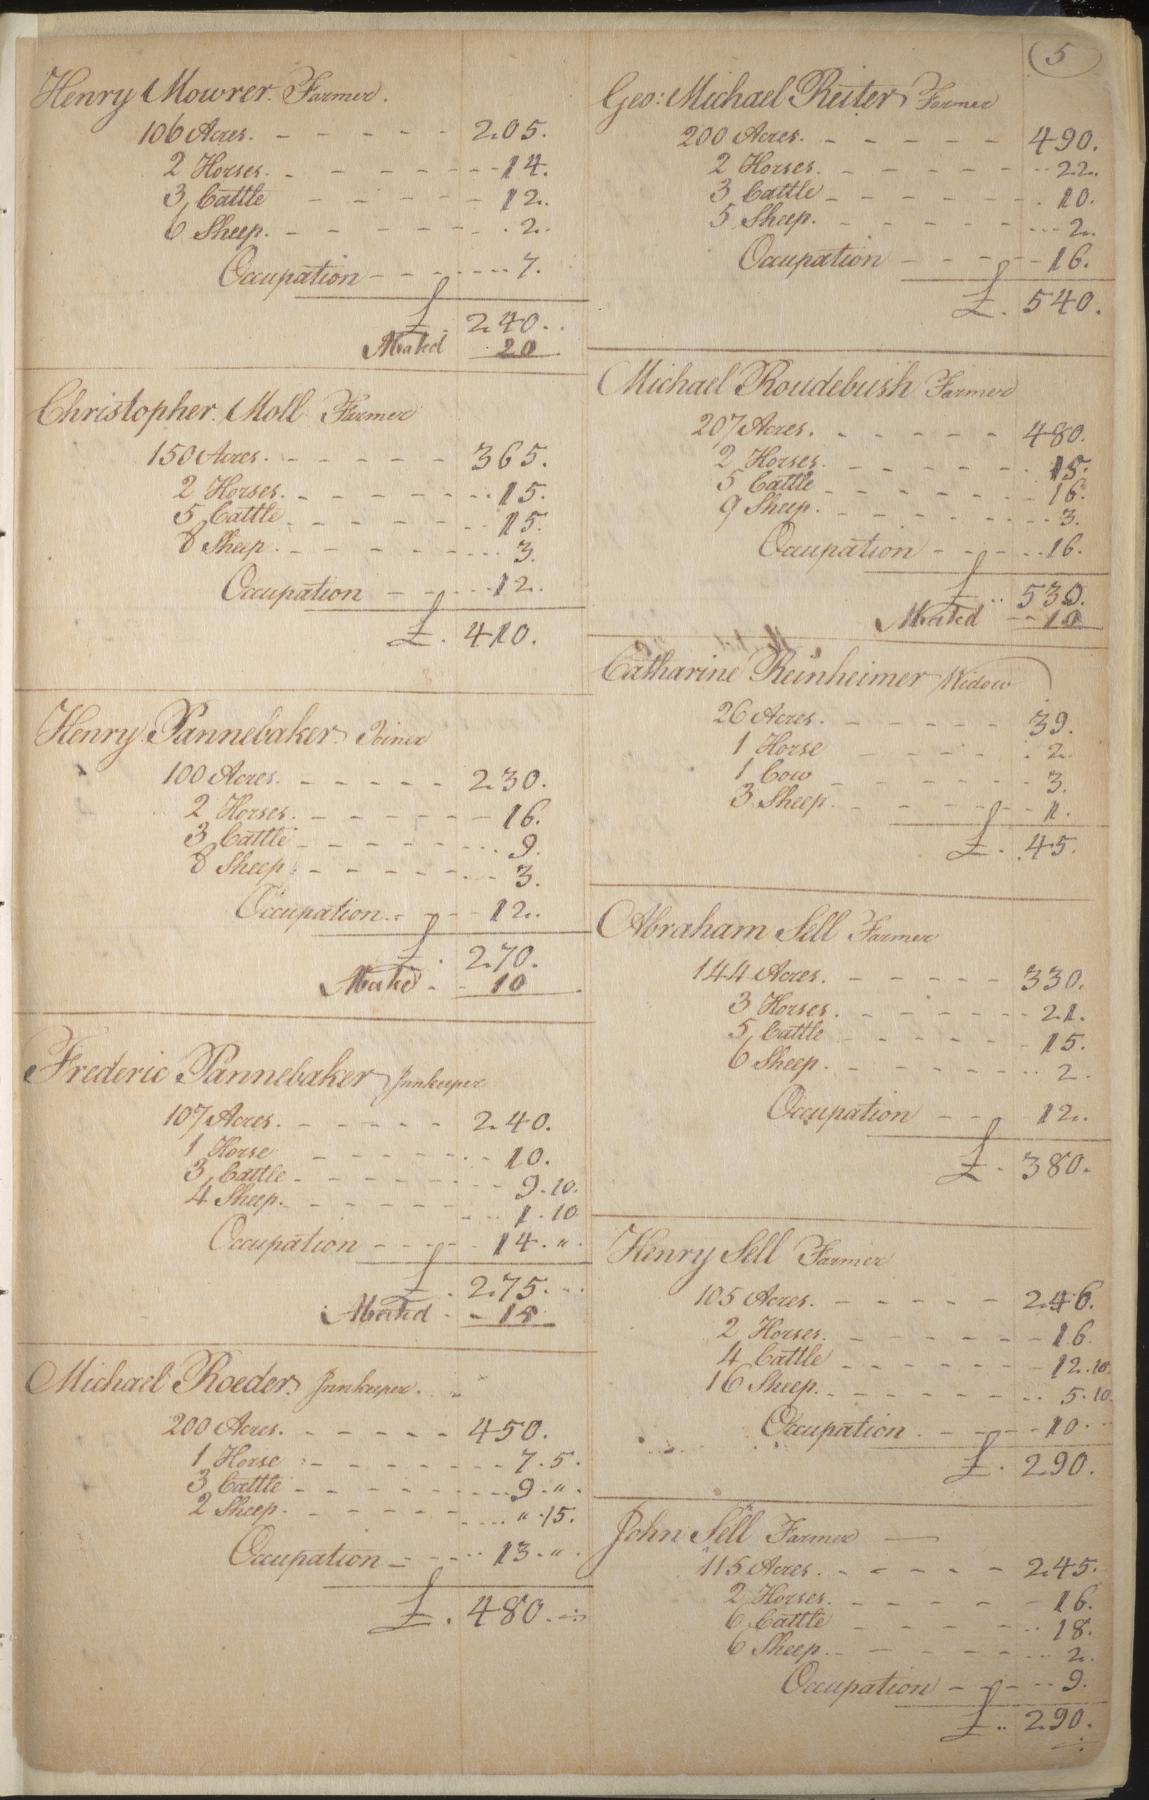 5
Henry Mowrer. Farmer.
106 Acres. - - - - - 205.
2 Horses. - - - - - - 14.
3 Cattle - - - - - 12.
6 Sheep. - - - - - - . 2.
Occupation - - - .... 7.
£. 240..
Abated 20
Christopher Moll Farmer
150 Acres. - - - - - 365.
2 Horses. - - - - - - 15.
5 Cattle. - - - - - - 15.
8 Sheep. - - - - - .... 3.
Occupation - - .... 12.
£. 410.
Henry Pannebaker Joiner
100 Acres. - - - - - 230.
2 Horses. - - - - - - 16.
3 Cattle - - - - - ... 9.
8 Sheep - - - - - ... 3.
Occupation. - - - 12.
£. 270.
Abated . - 10
Frederic Pannebaker Innkeeper
107 Acres. - - - - - 240.
1 Horse - - - - - - 10.
3 Cattle - - - - - - 9.10.
4 Sheep. - - - - - ... 1.10
Occupation - - - - 14. ".
£. 275...
Abated - - 15
Michael Roeder Innkeeper.
200 Acres. - - - - - 450.
1 Horse - - - - - - 7.5.
3 Cattle - - - - .... 9.".
2 Sheep. - - - - .... ".15.
Occupation - - ... 13.".
£. 480.
Geo: Michael Reiter Farmer
200 Acres. - - - - - 490.
2 Horses. - - - - - .. 22.
3 Cattle - - - - - - . 10.
5 Sheep. - - - - - ... 2.
Occupation - - - - 16.
£. 540.
Michael Roudebush Farmer
207 Acres. - - - - - 480.
2 Horses. - - - - - .. 15.
5 Cattle - - - - - - 16.
9 Sheep. - - - - ..... 3.
Occupation - - - ... 16.
£.. 530.
Abated -- 10
Catharine Reinheimer Widow
26 Acres. - - - - - 39.
1 Horse - - - - . 2.
1 Cow - - - - - - 3.
3 Sheep. - - - - - - 1.
£. 45.
Abraham Sell Farmer
144 Acres. - - - - - 330.
3 Horses. - - - - - - 21.
5 Cattle - - - - - - 15.
6 Sheep. - - - - - .. 2.
Occupation - - - 12.
£. 380.
Henry Sell Farmer
105 Acres. - - - - - 246.
2 Horses. - - - - - - 16.
4 Cattle - - - - - - 12.10.
16 Sheep. - - - - - .. 5.10.
Occupation . - - - - 10.
£. 290.
John Sell Farmer —
115 Acres. - - - - - 245.
2 Horses. - - - - - - 16.
6 Cattle - - - - - .. 18.
6 Sheep. - - - - - ... 2.
Occupation - - - -- 9.
£.. 290.